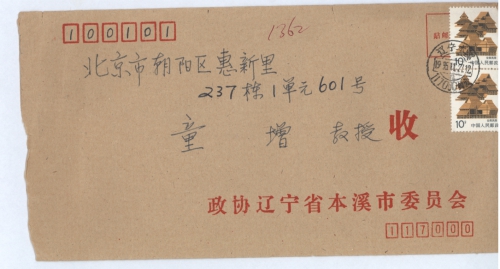 100101
1362
北京市朝阳区惠新里
237栋1单元601号
童增教授收
政协辽宁省本溪市委员会
117000
10分
中国人民邮政
中国人民邮政